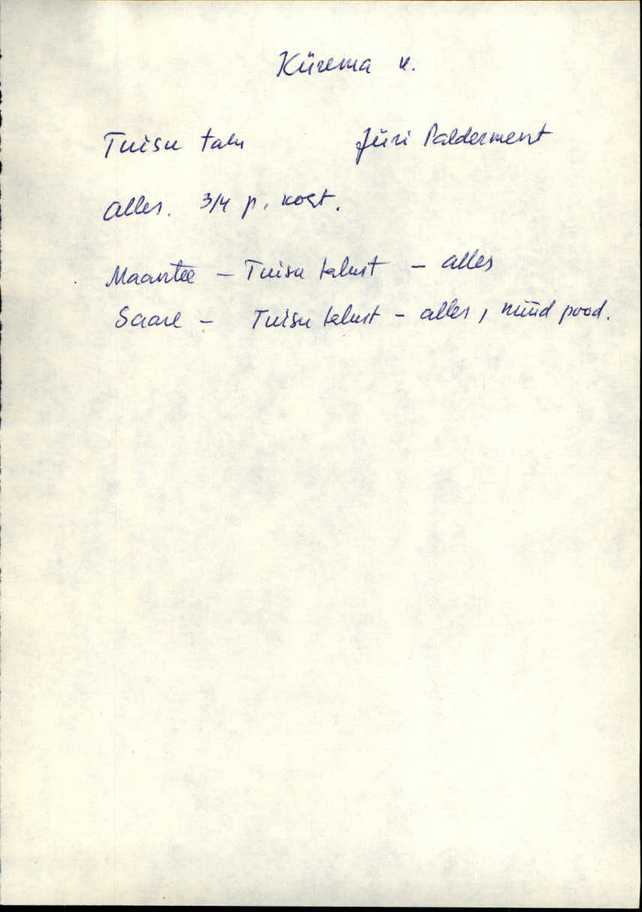 Kürema k.
Tuisu talu Jüri Palderment
alles. 3/4 p. koht.
Maantee – Tuisu talust – alles
Saare – Tuisu talust – alles, nüüd pood.